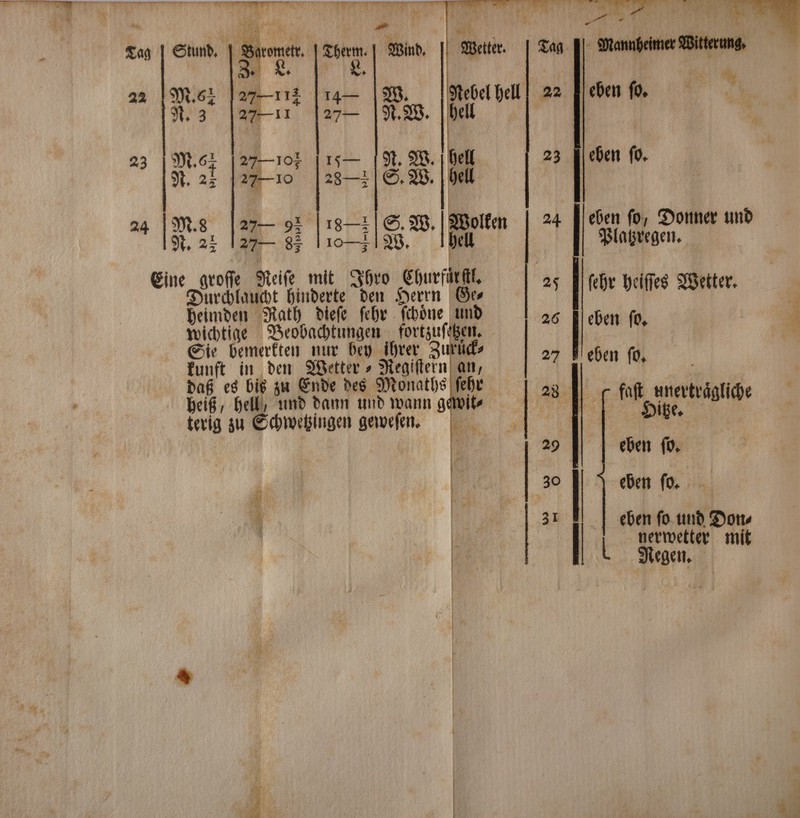 Tag | Stund. | Barometr. | Therm. | Wind. | Wetter. | Tag | Mannheimer Witterung.
Z. L. | L.
22 | M. 6½ | 27—11¾ | 14— | W. | Nebel hell | 22 | eben so.
N. 3 | 27—11 | 27— | N.W. | hell
23 | M. 6½ | 27—10⅓ | 15— | N. W. | hell | 23 | eben so.
N. 2½ | 27—10 | 28—½ | S. W. | hell
24 | M. 8 | 27— 9½ | 18—½ | S. W. | Wolken | 24 | eben so, Donner und
N. 2½ | 27— 8⅔ | 10—⅓ | W. | hell | Platzregen.
Eine grosse Reise mit Ihro Churfürstl.
Durchlaucht hinderte den Herrn Ge-
heimden Rath diese sehr schöne und
wichtige Beobachtungen fortzusetzen.
Sie bemerkten nur bey ihrer Zurück-
kunft in den Wetter-Registern an,
daß es biß zu Ende des Monaths sehr
heiß, hell, und dann und wann gewit-
terig zu Schwetzingen gewesen.
25 | sehr heisses Wetter.
26 | eben so.
27 | eben so.
28 | fast unerträgliche
Hitze.
29 | eben so.
30 | eben so.
31 | eben so und Don-
nerwetter mit
Regen.